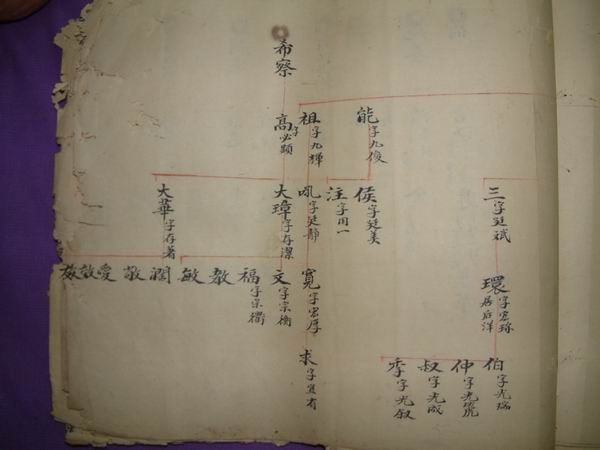 三字廷斌
環字宏琢
居后洋
伯字光瑞
仲字光虎
叔字光成
季字光叙
能字九俊
侯字廷美
注字用一
祖字九禪
吼字廷靜
寬字宏厚
求字宜有
希察
高字必顯
大璋字存潔
文字宗衡
福字宗衢
教
敏
大華字存著
濶
敬
愛